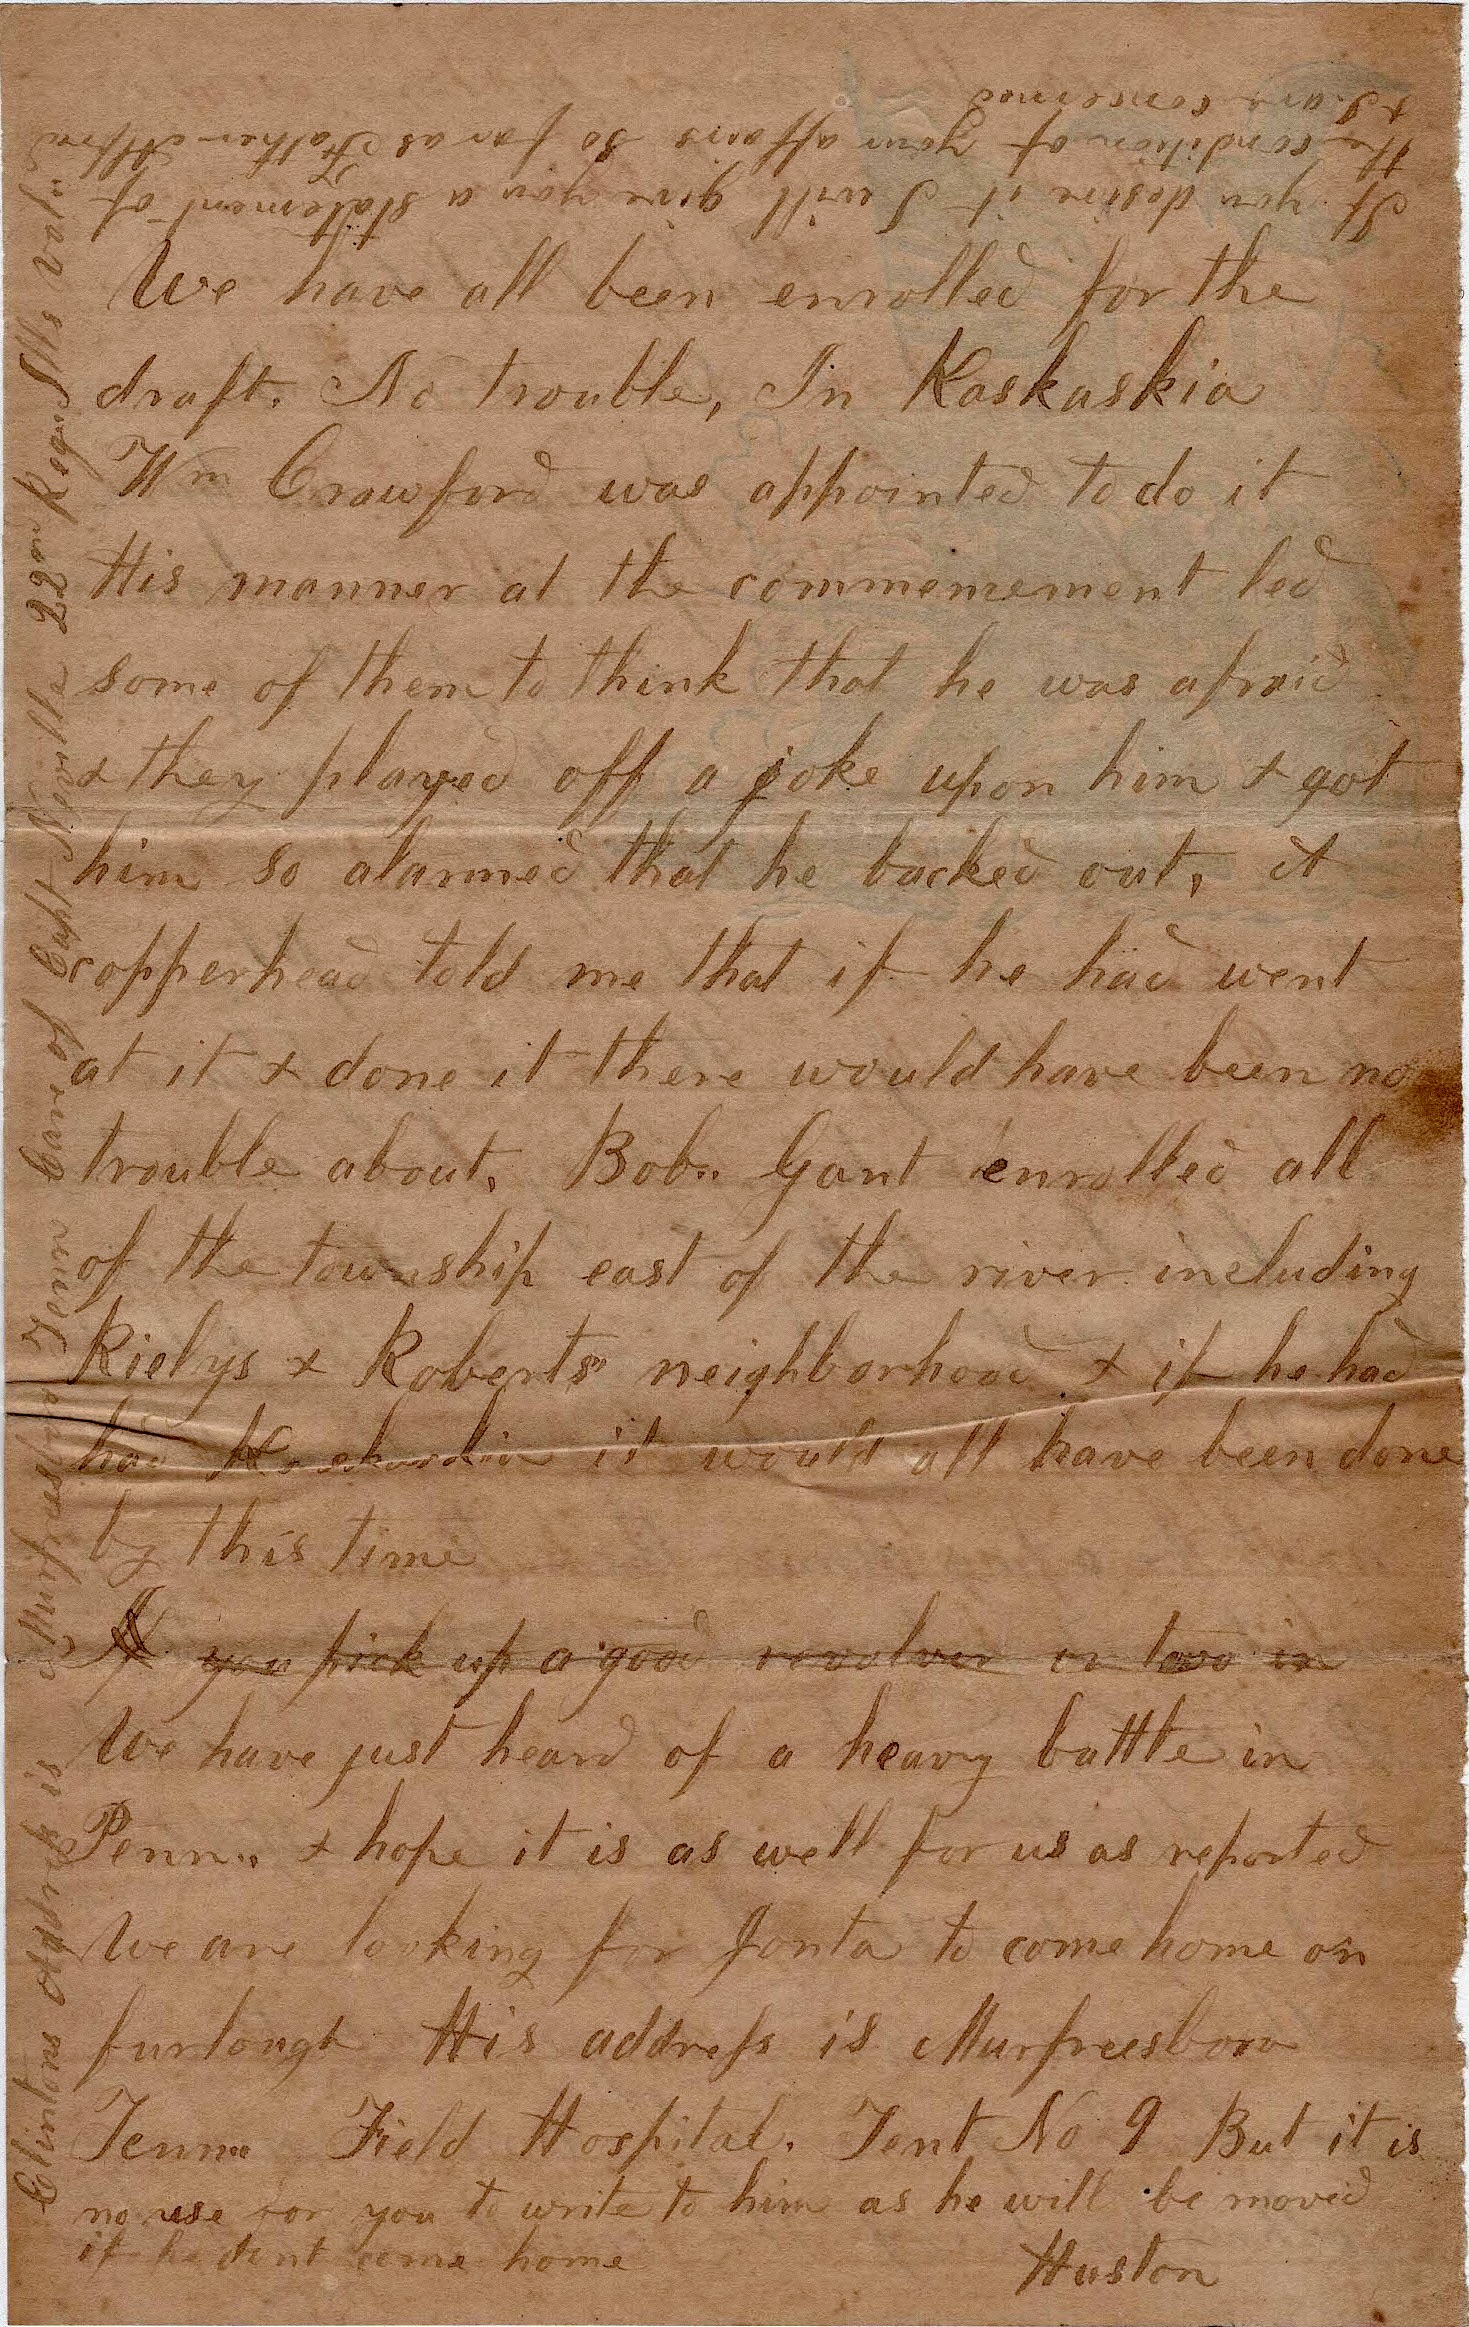 We have all been enrolled for the
draft. No trouble, In Kaskaskia
Wm Crawford was appointed to do it
His manner at the commencement led
some of them to think that he was afraid
& they played off a joke upon him & got
him so alarmed that he backed out, A
copperhead told me that if he had went
at it & done it there would have been no
trouble about, Bob.. Gant enrolled all
of the township east of the river including
Rielys & Roberts" neighborhood & if he had
had Kaskaskia it would all have been done
by this time
If you pick up a good revolver or two in
We have just heard of a heavy battle in
Penn.. & hope it is as well for us as reported
We are looking for Jonta to come home on
furlough His address is Murfreesboro
Tenn.. Field Hospital. Tent No 9 But it is
no use for you to write to him as he will be moved
if he dont come home
Huston
If you desire it I will give you a statement of
the condition of your affairs so far as Father
& I are concerned
Clintons address is Murfreesboro Tenn care of Capt Neville 22nd Reg. Ills Vols